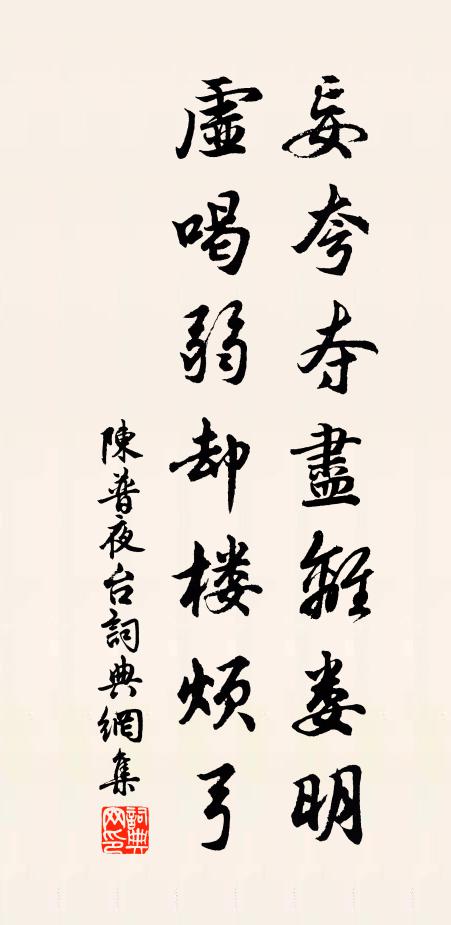 妄夸夺盡離娄明
虚喝弱却楼烦弓
陳普夜台詞典網集
詞典网印